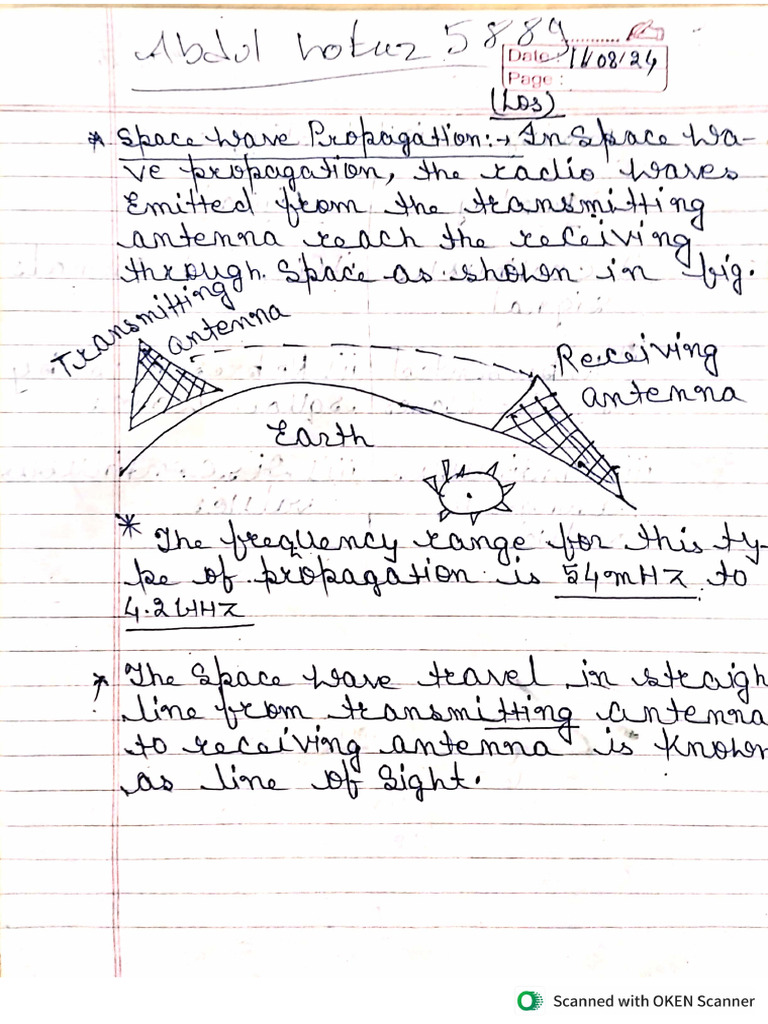 Abdul 5889
Date : 11/08/24
Page :
(LOS)
* Space Wave Propagation:→ In Space Wa-
ve propagation, the radio waves
Emitted from the transmitting
antenna reach the receiving
through Space as shown in fig.
Transmitting
antenna
Receiving
antenna
Earth
* The frequency range for this ty-
pe of propagation is 54mHz to
4.2GHz
* The Space Wave travel in straigh
line from transmitting antenna
to receiving antenna is Known
as line of Sight.
Scanned with OKEN Scanner